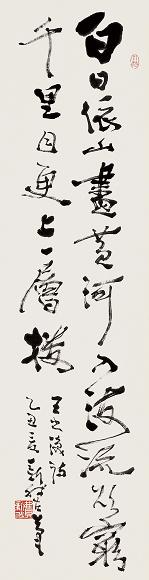 白日依山盡黄河入海流欲窮
千里目更上一層樓
王之渙诗
乙丑夏